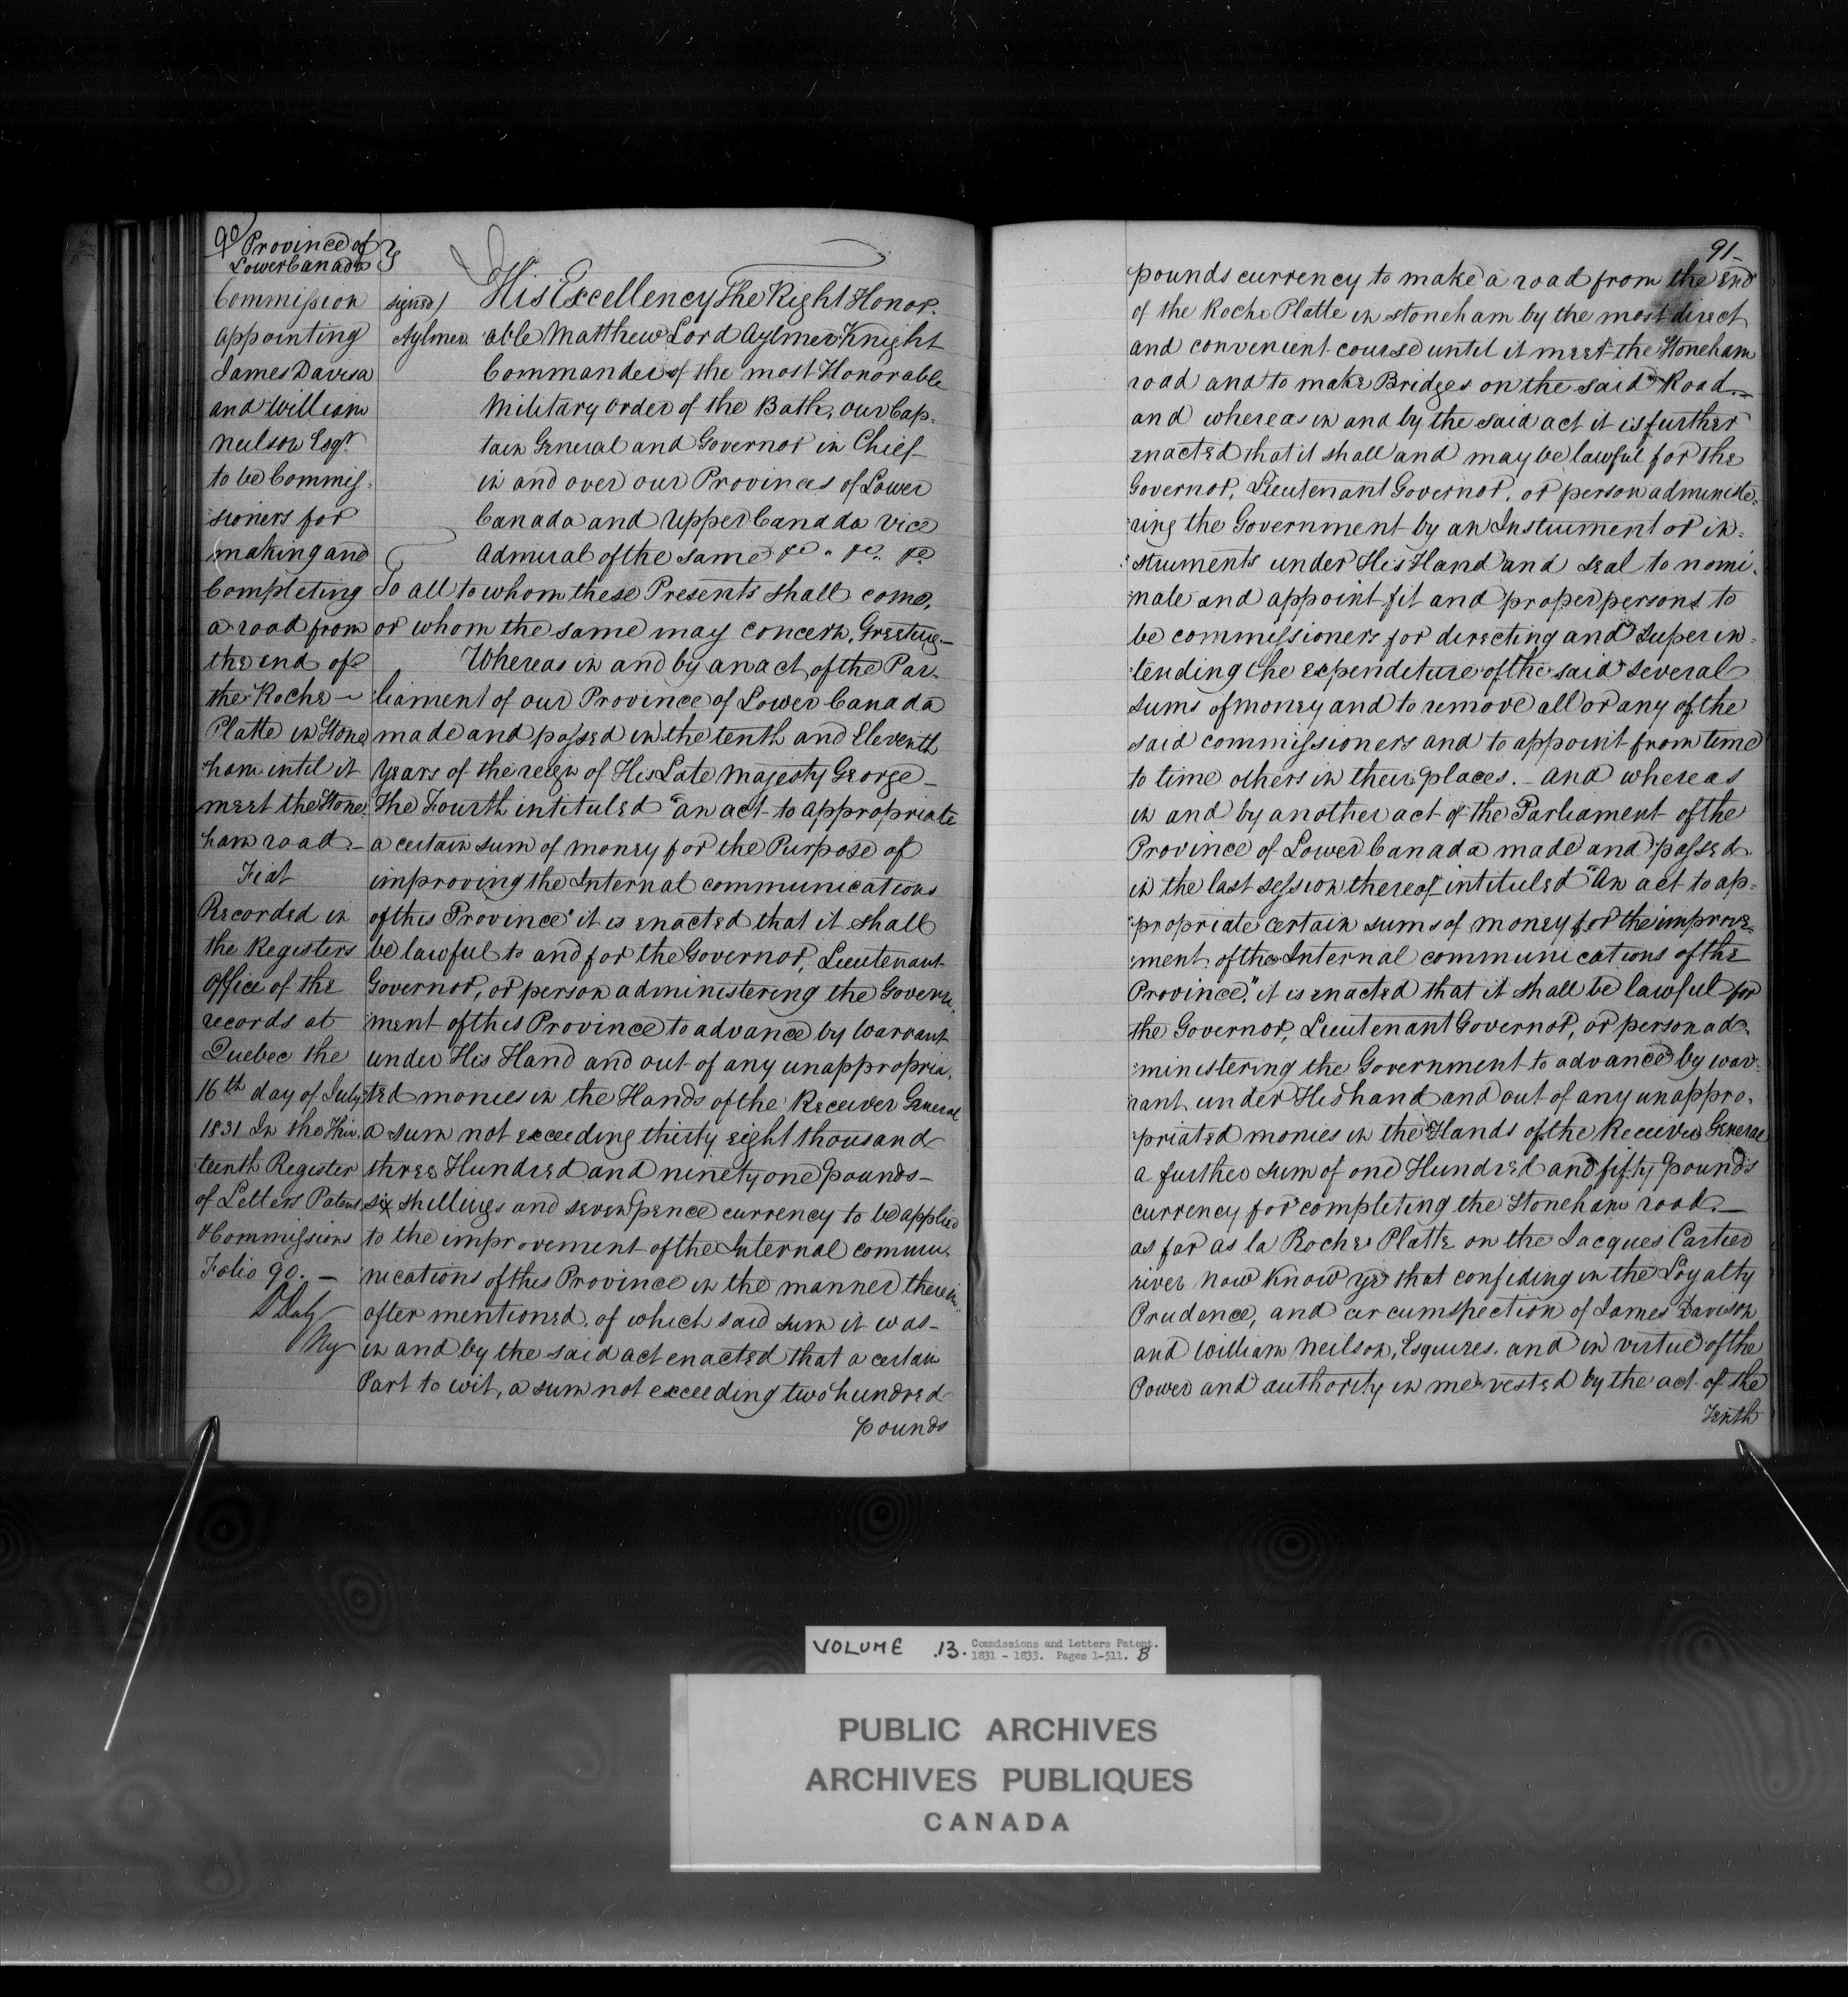 90
Province of }
Lower Canada
Commission
appointing
James Davison
and William
Neilson Esqr
to be Commis-
sioners for
making and
Completing
a road from
the end of
the Roche –
Platte in Stone
ham until it
meet the Stone
ham road. –
Fiat
Recorded in
the Registers
office of the
records at
Quebec the
16th day of July
1831 In the Thir
teenth Register
of Letters Patent
& Commissions
Folio 90. –
D Daly
Rg
signed)
Aylmer.
His Excellency The Right Honor-
able Matthew Lord Aylmer Knight
Commander of the most Honorable
Military order of the Bath, our Cap-
tain General and Governor in Chief
in and over our Provinces of Lower
Canada and Upper Canada Vice
Admiral of the same &c. &c. &c.
To all to whom these Presents shall come,
or whom the same may concern, Greeting –
Whereas in and by an act of the Par-
liament of our Province of Lower Canada
made and passed in the tenth and Eleventh
Years of the reign of His Late Majesty George –
the Fourth intituled "an act to appropriate
a certain sum of money for the Purpose of
improving the Internal communications
of this Province" it is enacted that it shall
be lawful to and for the Governor, Lieutenant
Governor, or person administering the Govern-
ment of this Province to advance by Warrant
under His Hand and out of any unappropria-
ted monies in the Hands of the Receiver General
a sum not exceeding thirty eight thousand
three Hundred and ninety one pounds –
six shillings and seven pence currency to be applied
to the improvement of the Internal commu-
nications of this Province in the manner therein-
after mentioned, of which said sum it was –
in and by the said act enacted that a certain
Part to wit, a sum not exceeding two hundred
pounds
91 –
pounds currency to make a road from the End
of the Roche Platte in Stoneham by the most direct
and convenient course until it meet the Stoneham
road and to make Bridges on the said Road –
and whereas in and by the said act it is further
enacted that it shall and may be lawful for the
Governor, Lieutenant Governor, or person administe-
ring the Government by an Instrument or in-
struments under His Hand and seal to nomi-
nate and appoint fit and proper persons to
be commissioners for directing and superin-
tending the expenditure of the said several
sums of money and to remove all or any of the
said commissioners and to appoint from time
to time others in their places. – and whereas
in and by another act of the Parliament of the
Province of Lower Canada made and passed
in the last session thereof intituled "An act to ap-
propriate certain sums of money for the improve-
ment of the Internal communications of the
Province," it is enacted that it shall be lawful for
the Governor, Lieutenant Governor, or person ad-
ministering the Government to advance by war-
rant under His hand and out of any unappro-
priated monies in the Hands of the Receiver General
a further sum of one Hundred and fifty pounds
currency for completing the Stoneham road –
as far as la Roche Platte on the Jacques Cartier
river Now Know ye that confiding in the Loyalty
Prudence, and circumspection of James Davison
and William Neilson, Esquires. and in virtue of the
Power and authority in me vested by the act of the
Tenth
VOLUME 13. Commissions and Letters Patent.
1831 - 1833. Pages 1-511. B
PUBLIC ARCHIVES
ARCHIVES PUBLIQUES
CANADA